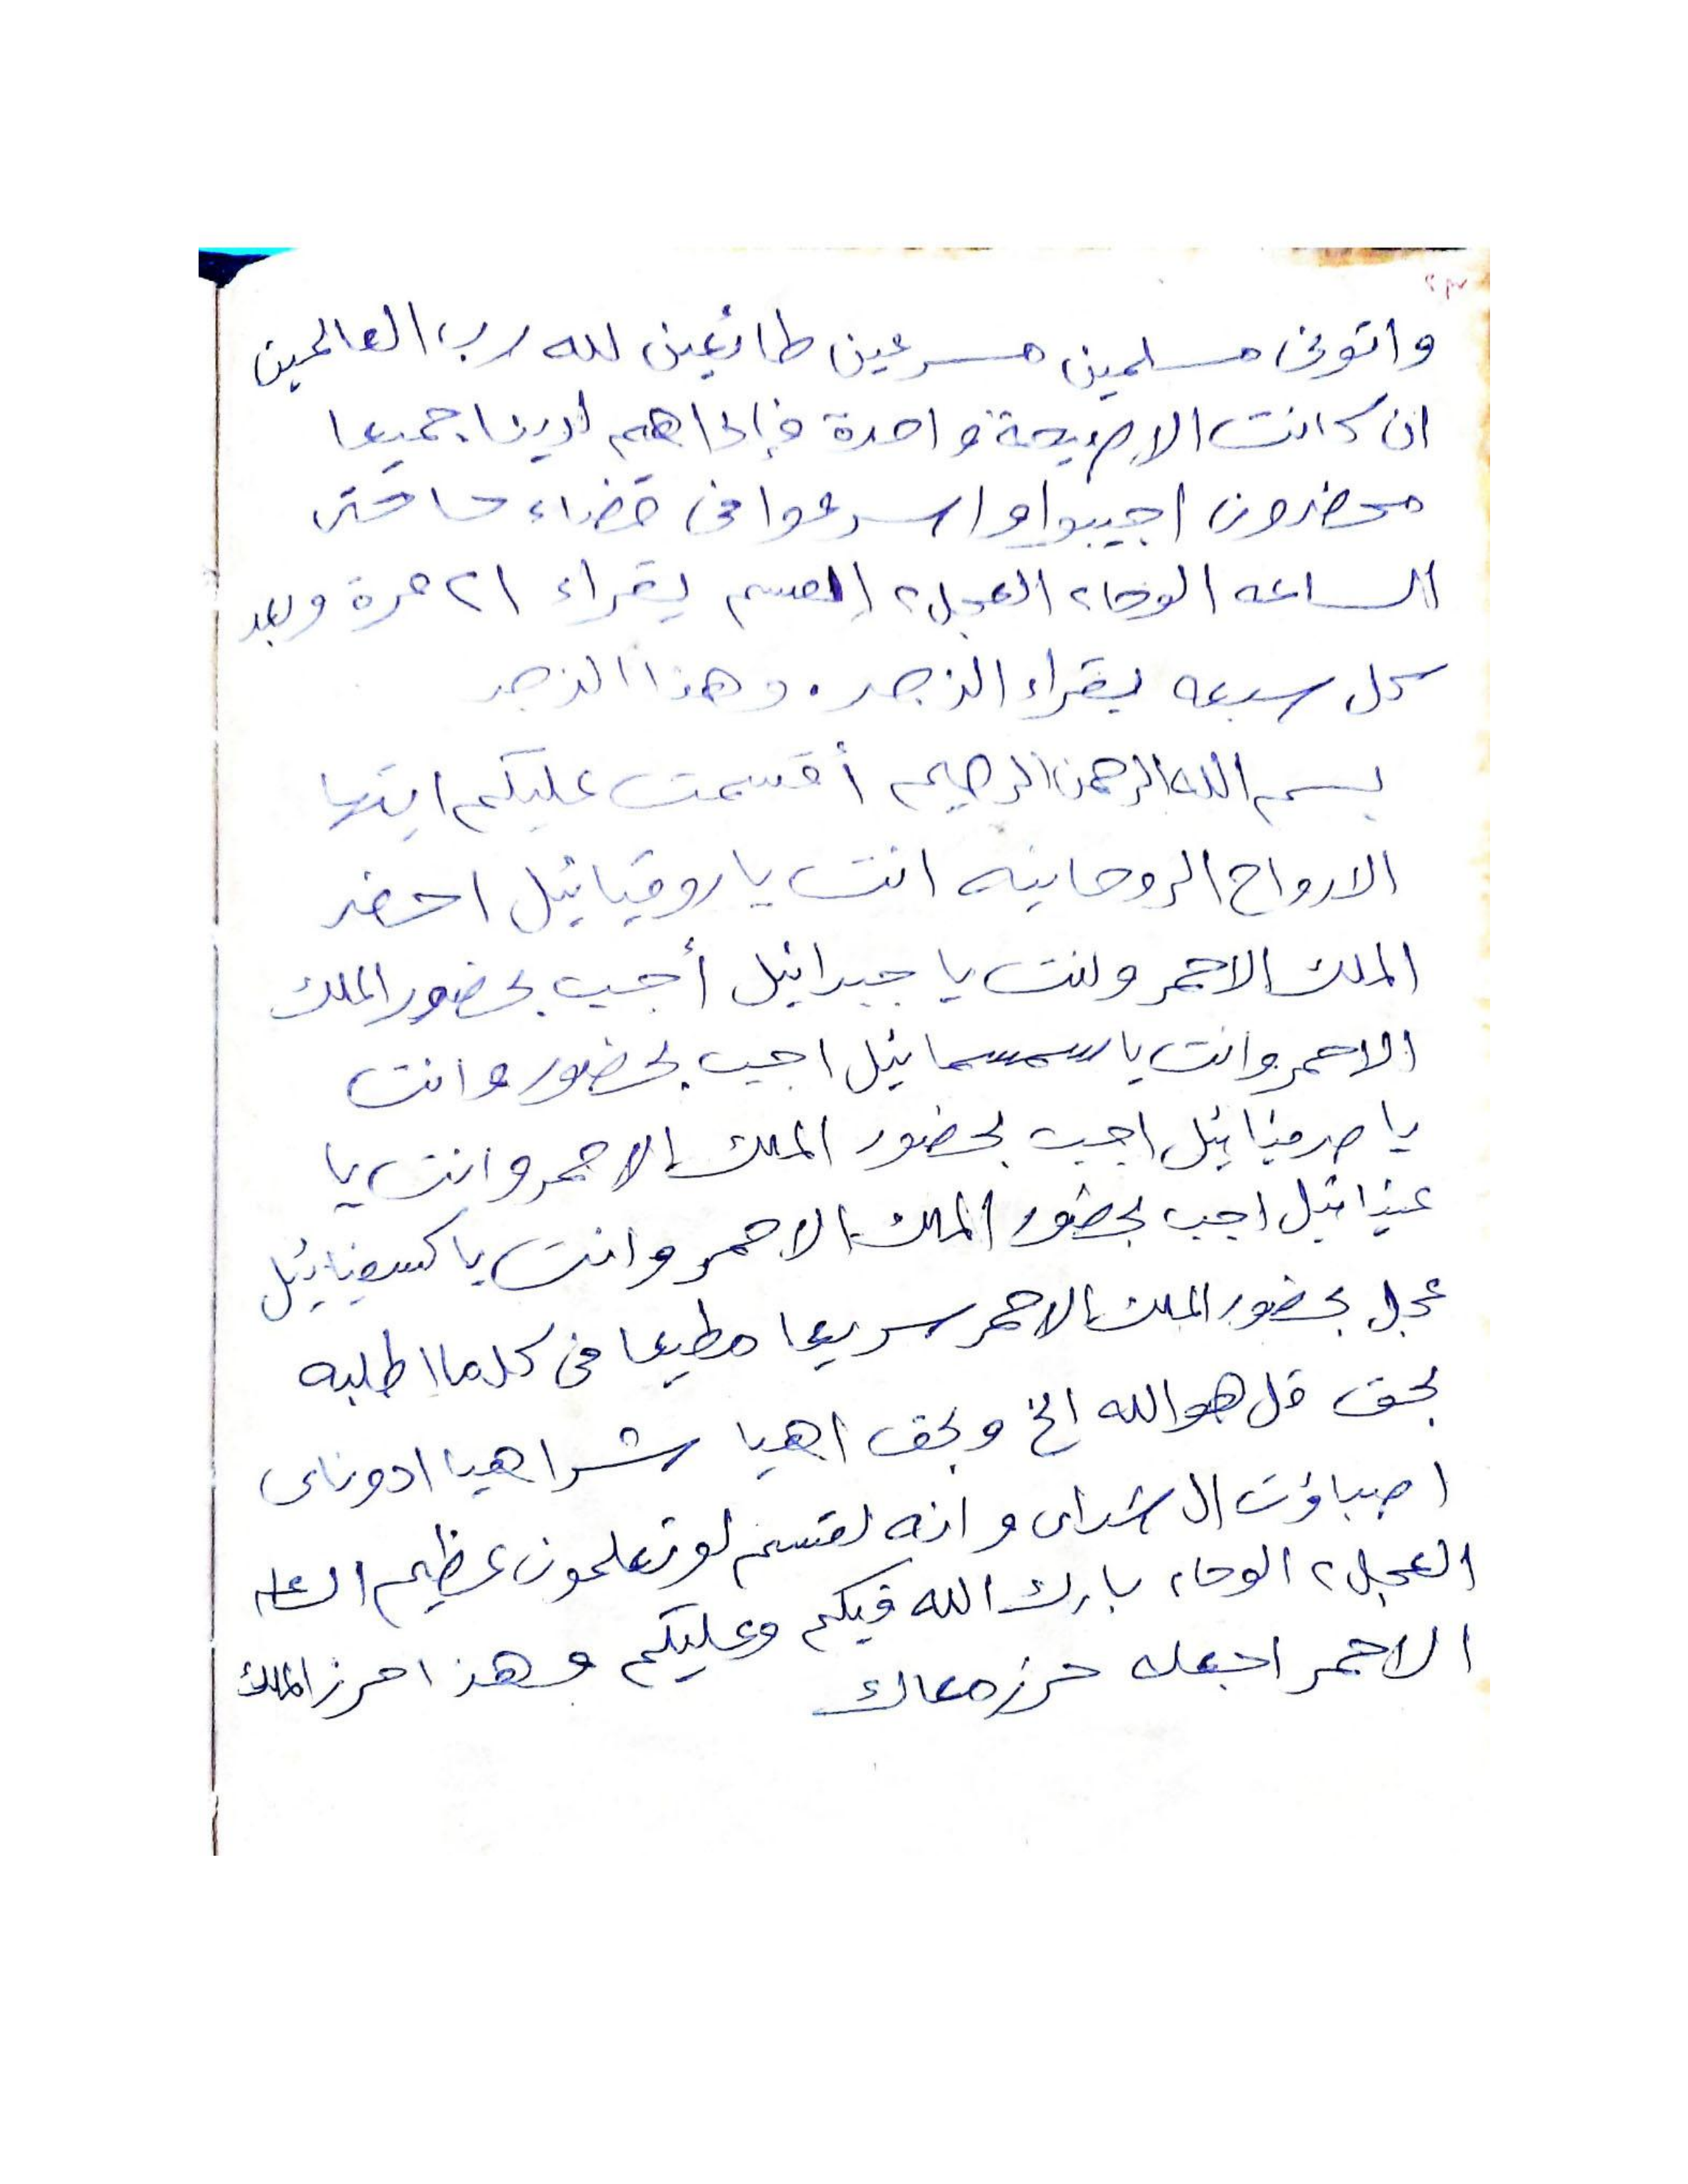 واتونى مسلمين مسرعين طائعين لله رب العالمين
ان كانت الاصيحة واحدة فإذا هم لدينا جميعا
محضرون اجيبوا واسرعوا فى قضاء حاجتى
الساعه الوحا٢ العجل٢ القسم يقراء ٢١ مرة وبعد
كل سبعه يقراء الزجر . وهذا الزجر
بسم الله الرحمن الرحيم أقسمت عليكم ايتها
الارواح الروحانيه انت يا روقيائيل احضر
الملك الاحمر وانت يا جبرائيل أجيب بحضور الملك
الاحمر وانت يا سمسمائيل اجيب بحضور وانت
يا صرفيائيل اجب بحضور الملك الاحمر وانت يا
عنيائيل اجب بحضور الملك الاحمر وانت يا كسفيائيل
عجل بحضور الملك الاحمر سريعا مطيعا فى كل ما اطلبه
بحق قل هو الله الخ وبحق اهيا شراهيا ادوناى
اصباؤت ال شداى وانه لقسم لو تعلمون عظيم
العجل٢ الوحا٢ بارك الله فيكم وعليكم وهذا حرز الملك
الاحمر اجعله حرز معاك